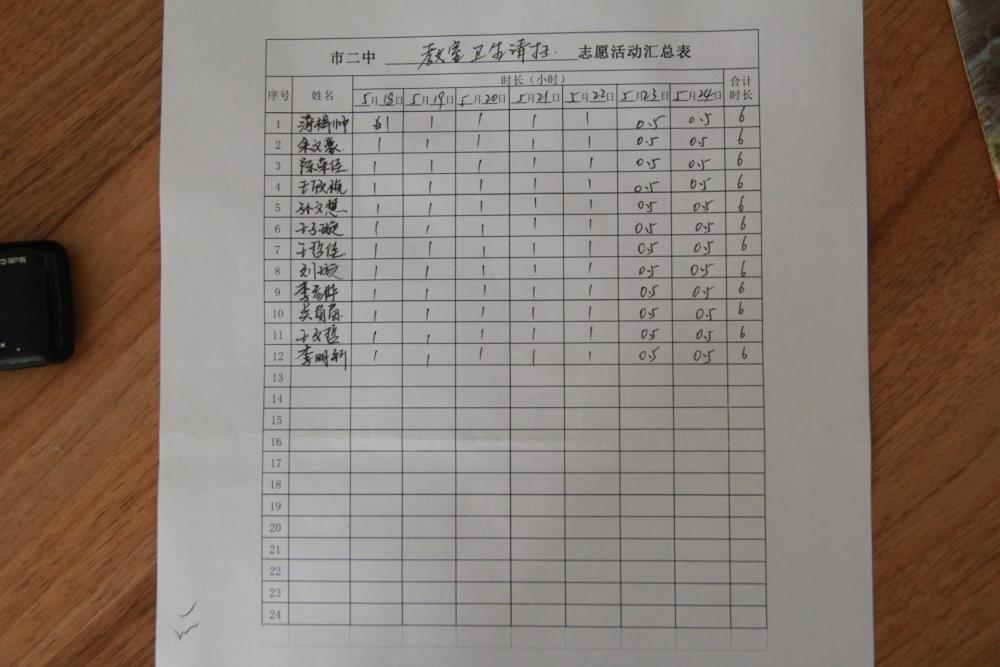 市二中 教室卫生清扫 志愿活动汇总表
序号 姓名 时长（小时） 合计时长
5月18日 5月19日 5月20日 5月21日 5月22日 5月23日 5月24日
1 1 1 1 1 1 0.5 0.5 6
2 余文豪 1 1 1 1 1 0.5 0.5 6
3 陈卓佳 1 1 1 1 1 0.5 0.5 6
4 1 1 1 1 1 0.5 0.5 6
5 孙文慧 1 1 1 1 1 0.5 0.5 6
6 王子璇 1 1 1 1 1 0.5 0.5 6
7 王哲佳 1 1 1 1 1 0.5 0.5 6
8 刘璇 1 1 1 1 1 0.5 0.5 6
9 李彦桦 1 1 1 1 1 0.5 0.5 6
10 1 1 1 1 1 0.5 0.5 6
11 王文哲 1 1 1 1 1 0.5 0.5 6
12 李明新 1 1 1 1 1 0.5 0.5 6
13
14
15
16
17
18
19
20
21
22
23
24